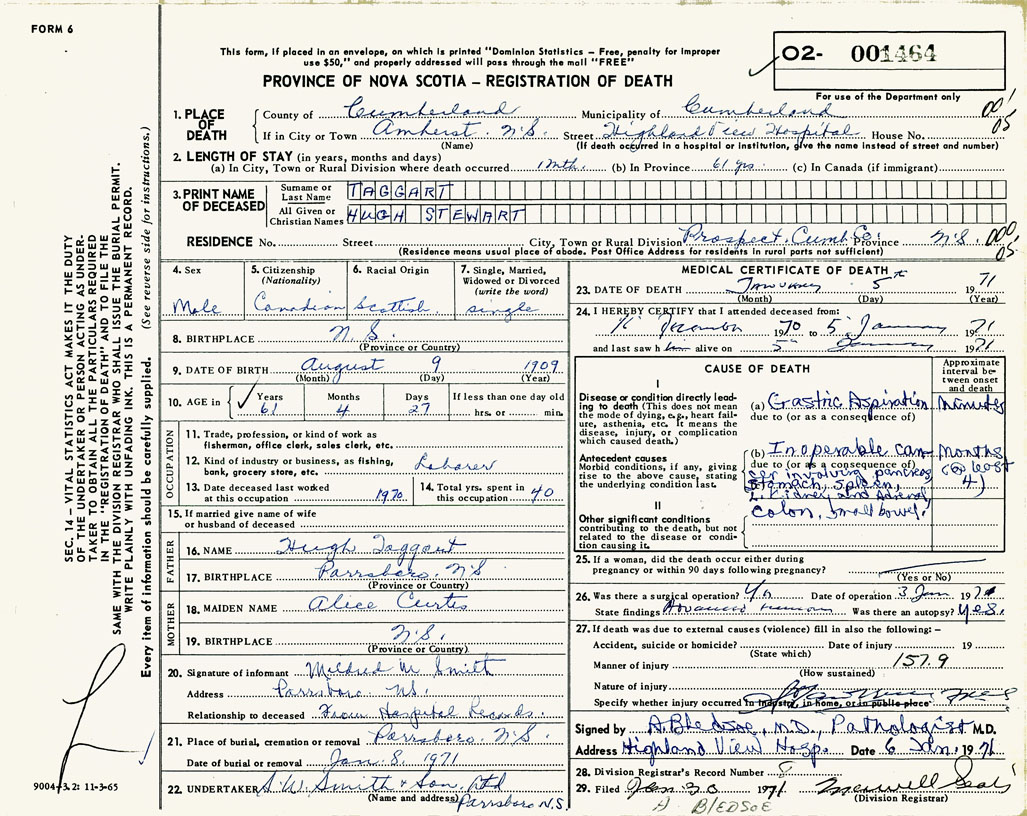 FORM 6
This form, if placed in an envelope, on which is printed "Dominion Statistics – Free, penalty for improper
use $50," and properly addressed will pass through the mail "FREE"
O2- 001464
For use of the Department only
PROVINCE OF NOVA SCOTIA – REGISTRATION OF DEATH
1. PLACE OF DEATH
County of Cumberland Municipality of Cumberland 001
If in City or Town Amherst. N.S. Street Highland View Hospital House No. 05
(Name) (If death occurred in a hospital or institution, give the name instead of street and number)
2. LENGTH OF STAY (in years, months and days)
(a) In City, Town or Rural Division where death occurred 1 mth. (b) In Province 61 yrs. (c) In Canada (if immigrant)
3. PRINT NAME OF DECEASED
Surname or Last Name TAGGART
All Given or Christian Names HUGH STEWART
RESIDENCE No. Street City, Town or Rural Division Prospect, Cumb. Co. Province N.S. 000,
05
(Residence means usual place of abode. Post Office Address for residents in rural parts not sufficient)
4. Sex
Male
5. Citizenship
(Nationality)
Canadian
6. Racial Origin
Scottish
7. Single, Married,
Widowed or Divorced
(write the word)
single
8. BIRTHPLACE N.S.
(Province or Country)
9. DATE OF BIRTH August 9 1909
(Month) (Day) (Year)
10. AGE in Years Months Days If less than one day old
61 4 27 hrs. or min.
OCCUPATION
11. Trade, profession, or kind of work as
fisherman, office clerk, sales clerk, etc.
12. Kind of industry or business, as fishing,
bank, grocery store, etc. Laborer
13. Date deceased last worked
at this occupation 1970
14. Total yrs. spent in
this occupation 40
15. If married give name of wife
or husband of deceased
FATHER
16. NAME Hugh Taggart
17. BIRTHPLACE Parrsboro. N.S
(Province or Country)
MOTHER
18. MAIDEN NAME Alice Curtis
19. BIRTHPLACE N.S.
(Province or Country)
20. Signature of informant Mildred M Smith
Address Parrsboro. N.S.
Relationship to deceased From Hospital Records.
21. Place of burial, cremation or removal Parrsboro. N.S.
Date of burial or removal Jan. 8. 1971
22. UNDERTAKER S.W. Smith & Son. Ltd
(Name and address) Parrsboro N.S.
MEDICAL CERTIFICATE OF DEATH
23. DATE OF DEATH January 5 1971
(Month) (Day) (Year)
24. I HEREBY CERTIFY that I attended deceased from:
1970 to 5 January 1971
and last saw h him alive on 5 January 1971
CAUSE OF DEATH
Approximate
interval be-
tween onset
and death
I
Disease or condition directly lead-
ing to death (This does not mean
the mode of dying, e.g., heart failure,
asthenia, etc. It means the
disease, injury, or complication
which caused death.)
(a) Gastric Aspiration minutes
due to (or as a consequence of)
Antecedent causes
Morbid conditions, if any, giving
rise to the above cause, stating
the underlying condition last.
(b) Inoperable can- months
due to (or as a consequence of) (at least
cer involving pancreas 4)
stomach, spleen,
L. Kidney and Adrenal,
colon, small bowel.
II
Other significant conditions
contributing to the death, but not
related to the disease or condi-
tion causing it.
25. If a woman, did the death occur either during
pregnancy or within 90 days following pregnancy?
(Yes or No)
26. Was there a surgical operation? Date of operation 3 Jan. 1971
State findings Advanced Was there an autopsy? yes.
27. If death was due to external causes (violence) fill in also the following: –
Accident, suicide or homicide? Date of injury 19
(State which)
Manner of injury 157.9
(How sustained)
Nature of injury
Specify whether injury occurred in industry, in home, or in public place
Signed by A. Bledsoe, M.D., Pathologist M.D.
Address Highland View Hosp. Date 6 Jan. 1971
28. Division Registrar's Record Number 8
29. Filed Jan 30 1971
(Division Registrar)
A BlEDSoE
SEC. 14 – VITAL STATISTICS ACT MAKES IT THE DUTY
OF THE UNDERTAKER OR PERSON ACTING AS UNDER-
TAKER TO OBTAIN ALL THE PARTICULARS REQUIRED
IN THE "REGISTRATION OF DEATH" AND TO FILE THE
SAME WITH THE DIVISION REGISTRAR WHO SHALL ISSUE THE BURIAL PERMIT.
WRITE PLAINLY WITH UNFADING INK. THIS IS A PERMANENT RECORD.
Every item of information should be carefully supplied. (See reverse side for instructions.)
9004-3.2: 11-3-65